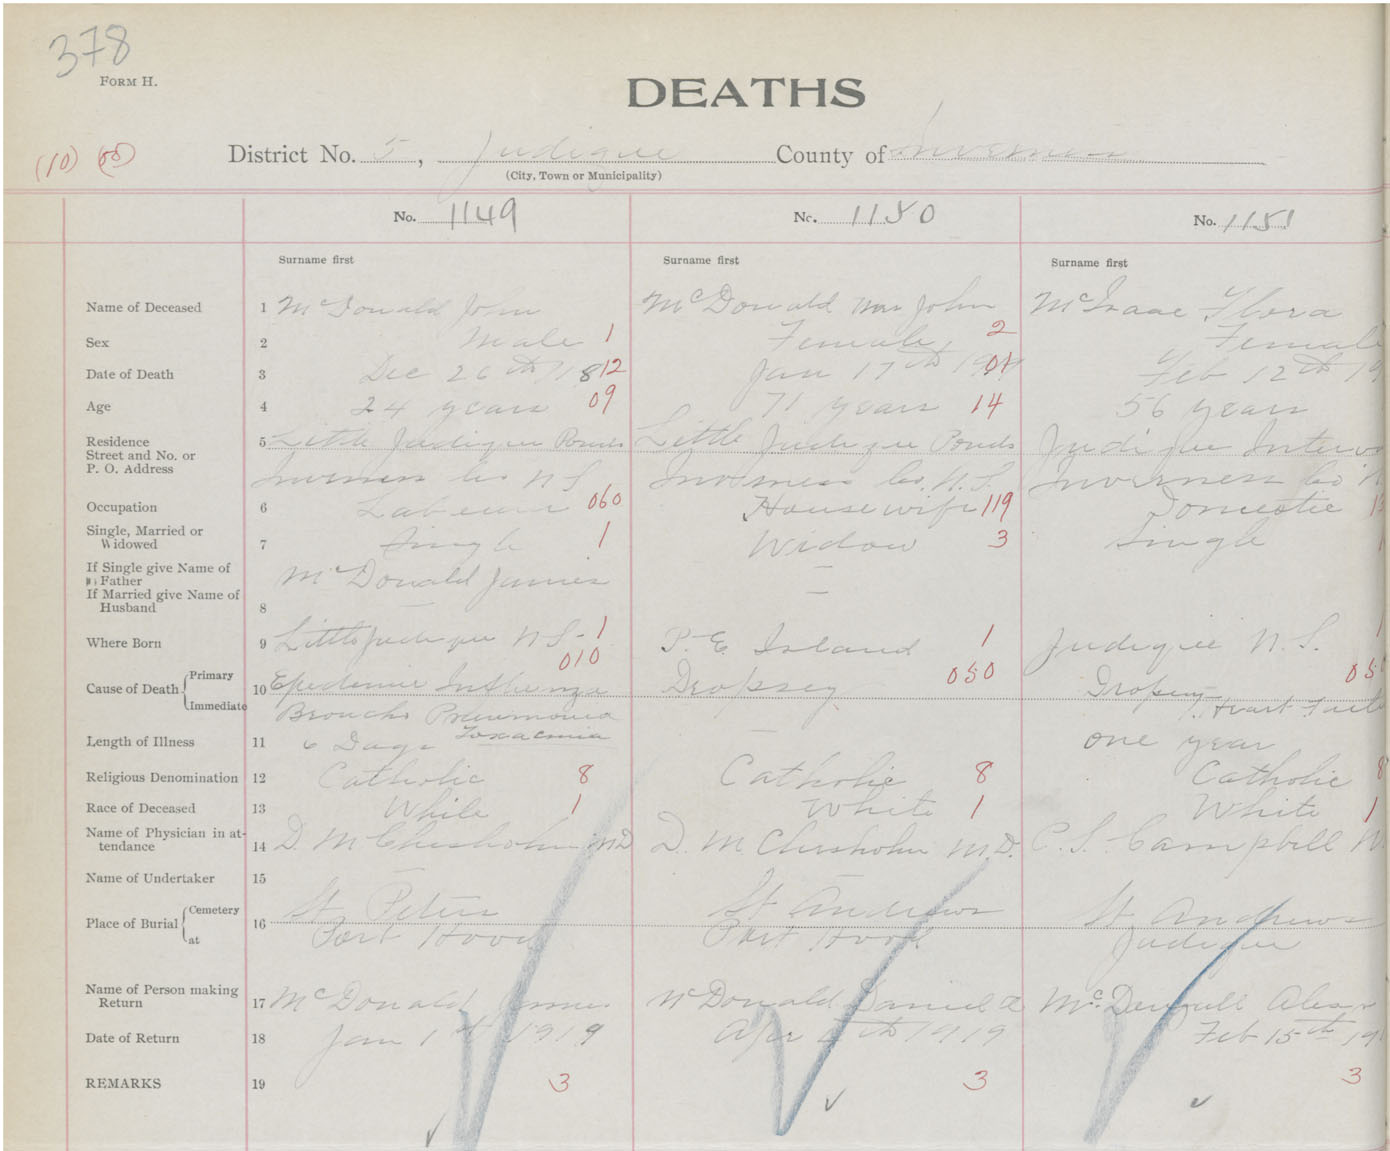 378
FORM H.
DEATHS
(10)
District No. 5, Judique County of Inverness
(City, Town or Municipality)
No. 1149 No. 1150 No. 1151
Surname first Surname first Surname first
Name of Deceased 1 McDonald John McDonald Mrs John McIsaac Flora
Sex 2 Male 1 Female 2 Female
Date of Death 3 Dec 26th 18 12 Jan 17th 19 01 Feb 12th 19
Age 4 24 years 09 71 years 14 56 years
Residence 5 Little Judique Ponds Little Judique Ponds Judique Interv
Street and No. or
P. O. Address Inverness Co N S Inverness Co. N. S. Inverness Co N
Occupation 6 Labourer 060 Housewife 119 Domestic 1
Single, Married or
Widowed 7 Single 1 Widow 3 Single
If Single give Name of
Father McDonald James —
If Married give Name of
Husband 8 — —
Where Born 9 Little Judique N S- 1 P. E. Island 1 Judique N. S.
010 050 05
Cause of Death Primary 10 Epidemic Influenza Dropsey Dropsey
Immediate Broncho Pneumonia Heart Fail
Toxaemia
Length of Illness 11 6 Days — one year
Religious Denomination 12 Catholic 8 Catholic 8 Catholic 8
Race of Deceased 13 White 1 White 1 White 1
Name of Physician in at-
tendance 14 D. M Chisholm MD D. M Chisholm M.D. C. S. Campbell M.
Name of Undertaker 15 — —
Place of Burial Cemetery St. Peters St Andrews St Andrews
16
at Port Hood Port Hood Judique
Name of Person making
Return 17 McDonald James McDonald Daniel A Mc
Date of Return 18 Jan 1st 1919 Apr th 1919 Feb 15th 19
REMARKS 19 3 3 3